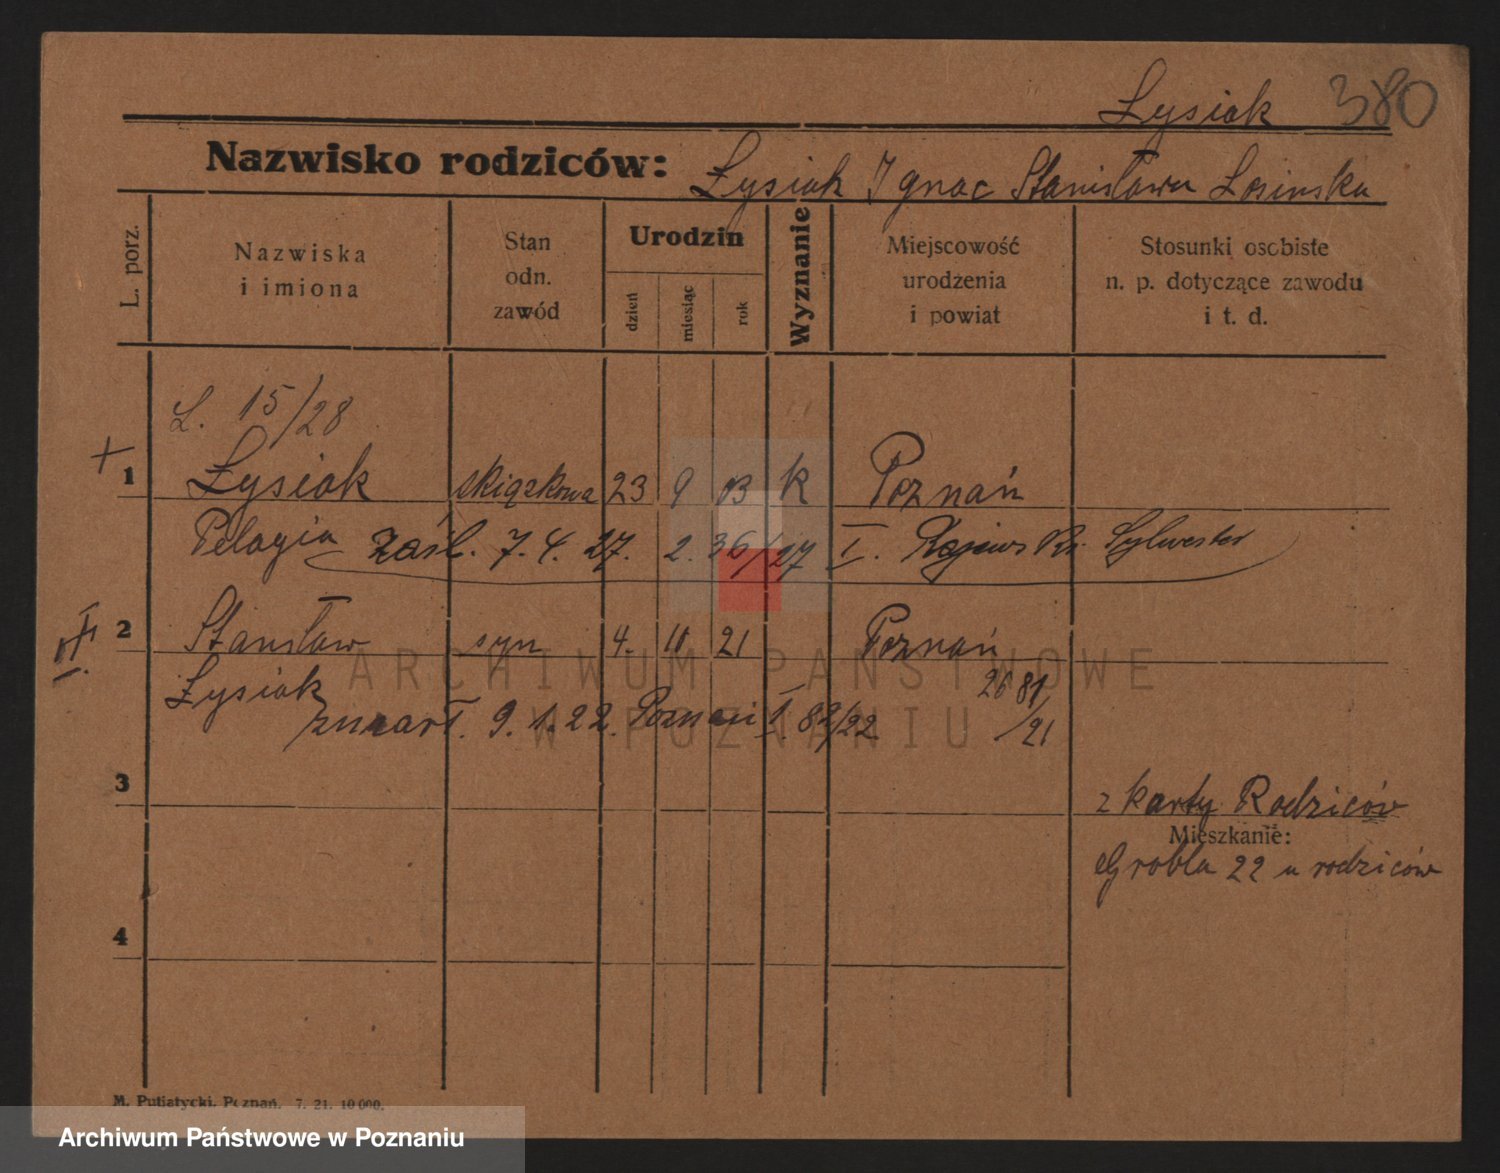 Łysiak 380
Nazwisko rodziców: Łysiak Ignac Stanisława Losinska
L. porz.
Nazwiska i imiona
Stan odn. zawód
Urodzin
dzień
miesiąc
rok
Wyznanie
Miejscowość urodzenia i powiat
Stosunki osobiste n. p. dotyczące zawodu i t. d.
L. 15/28
1 Łysiak 23 9 03 k Poznań
Pelagia zaśl. 7. 4. 27. 2. 36/27 I. Sylwester
2 Stanisław syn 4. 11 21 Poznań
Łysiak 2681/21
zmarł. 9. 1. 22. Poznań I. 82/22
3
z karty Rodziców
Mieszkanie:
Grobla 22 u rodziców
4
M. Putiatycki. Poznań. 7. 21. 10 000.
ARCHIWUM PAŃSTWOWE
W POZNANIU
Archiwum Państwowe w Poznaniu